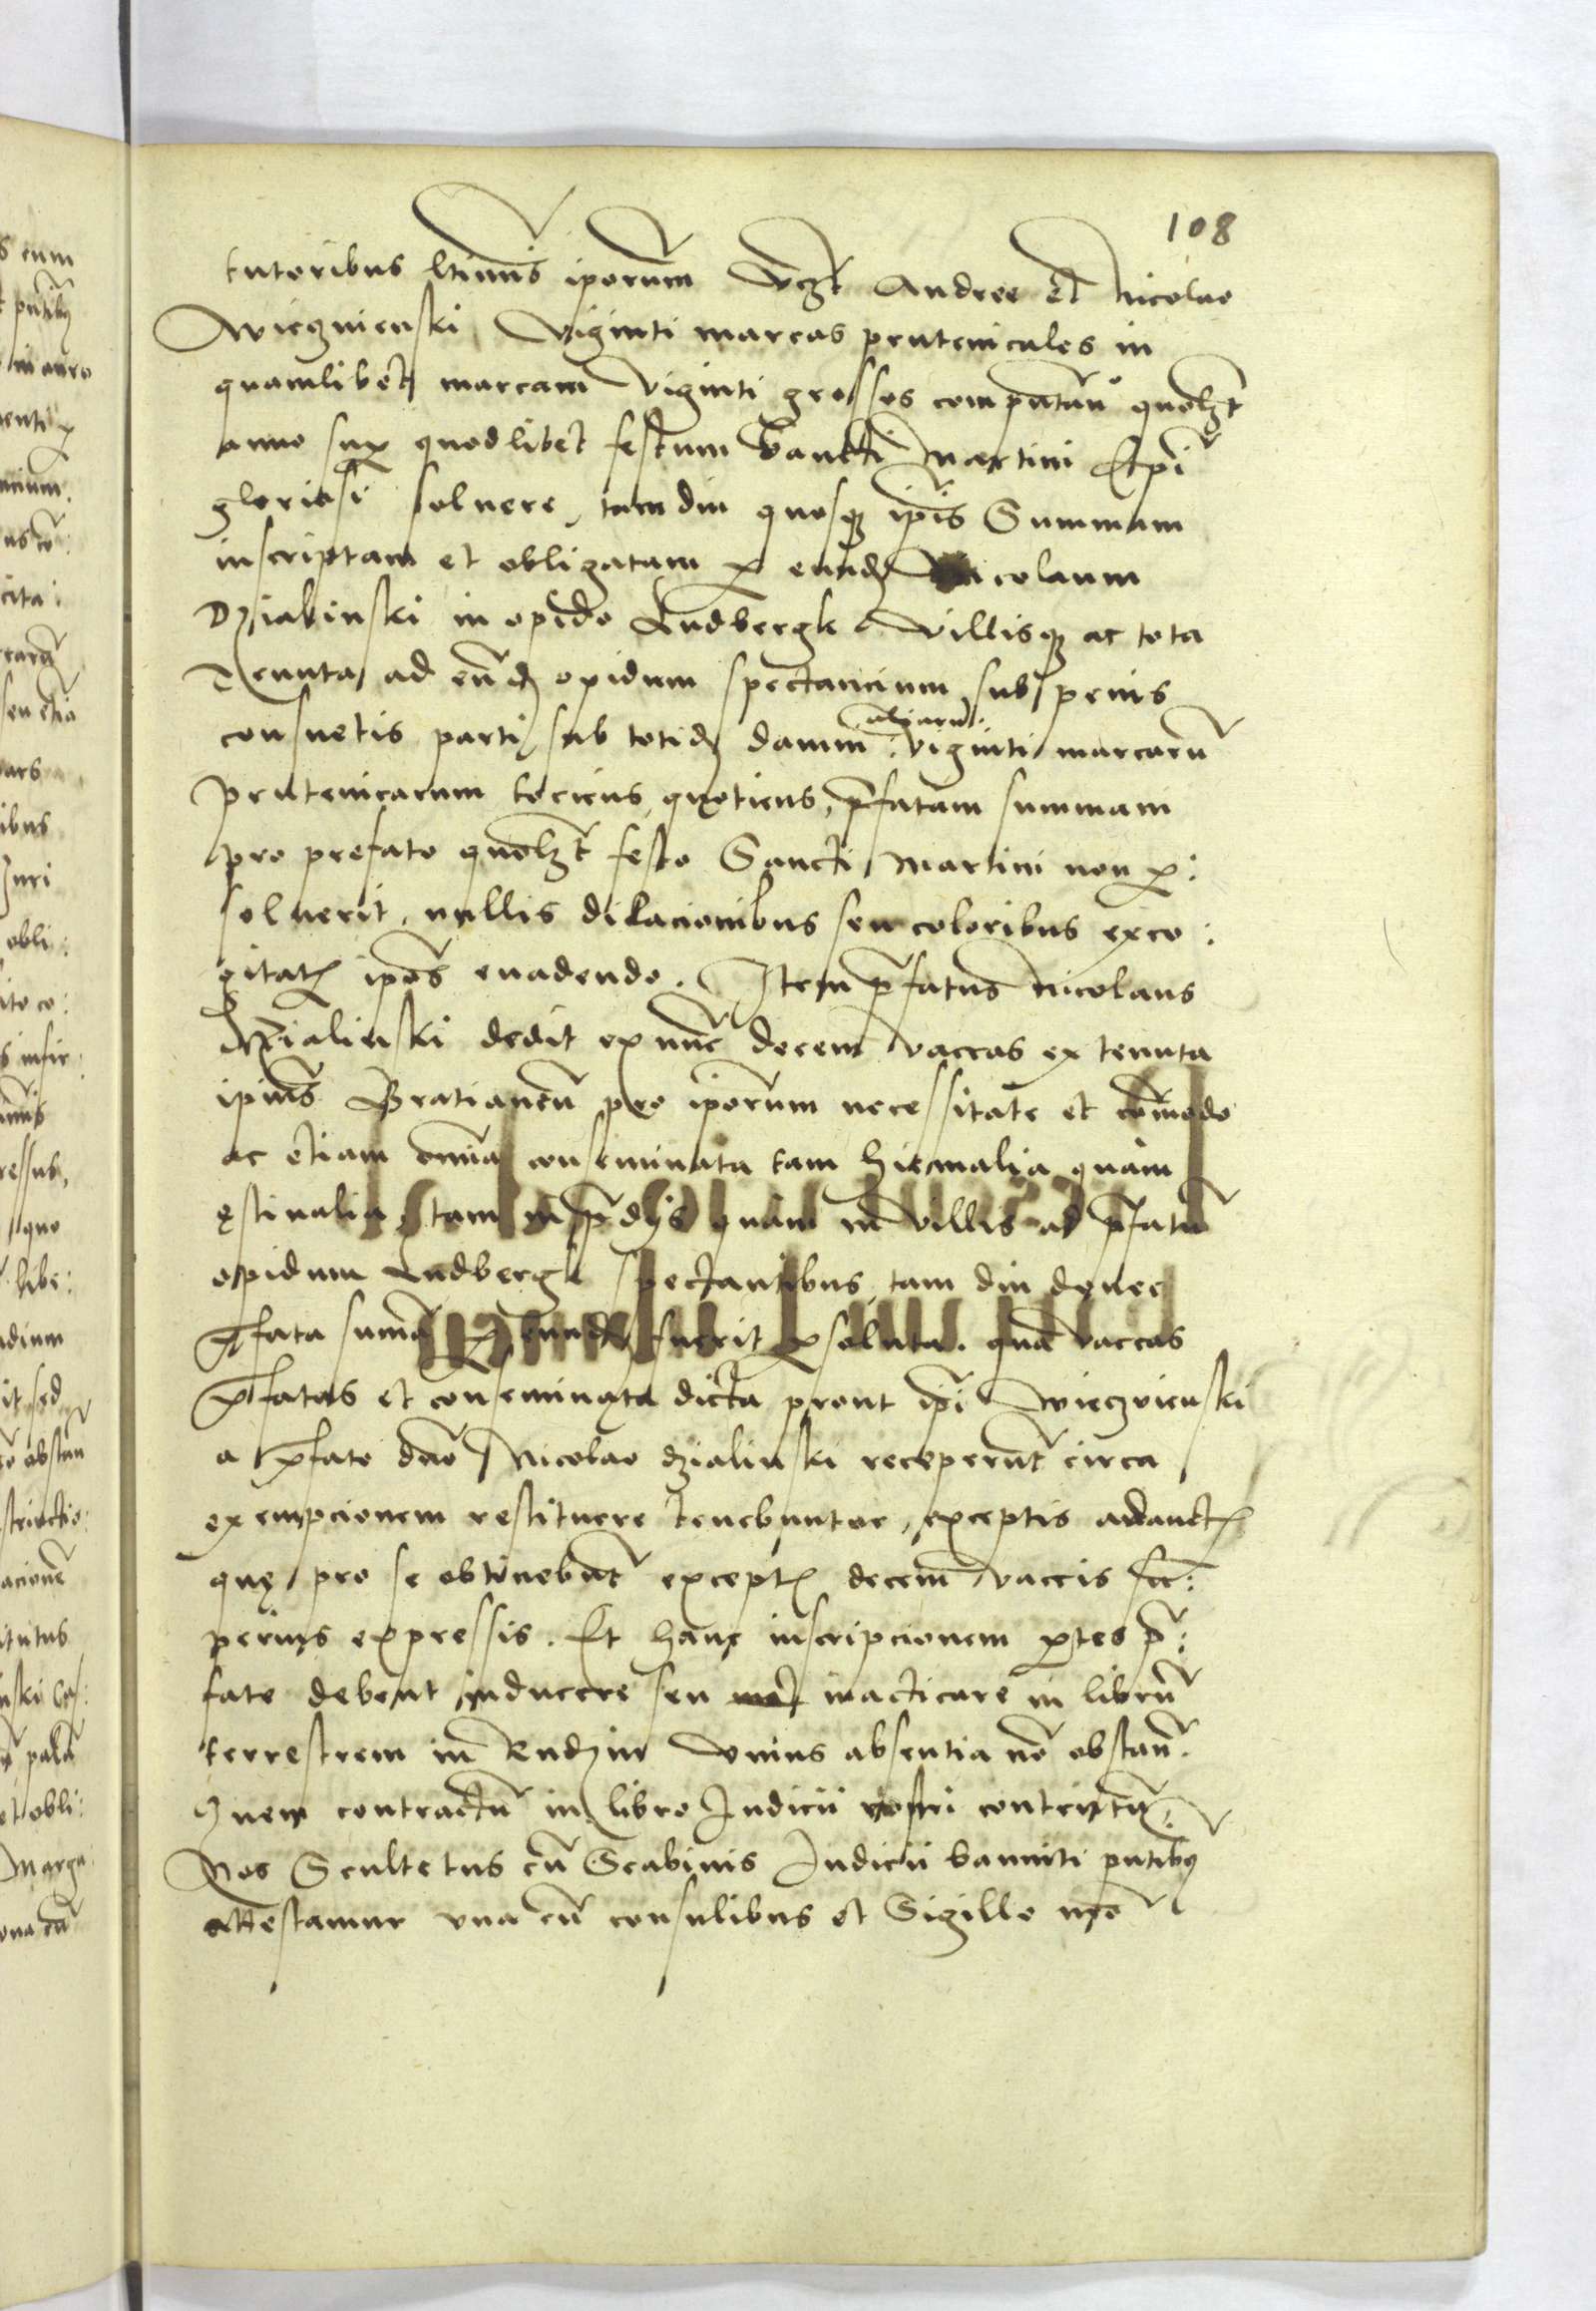 108
tutoribus ltimis iporum vczt Andree et Nicolao
Wieczvienski, Viginti marcas prutenicales in
quamlibet marcam Viginti grossos computan quolzt
anno sup quodlibet festum Sancti Martini Epi
gloriosi soluere, tam diu quosq ipis Summam
inscriptam et obligatam p eundz Nicolaum
Dzialinski in opido Ludbergk Villisq ac tota
Tenuta ad eudz opidum spectancium sub penis
consuetis parti sub totidz damni aliarum viginti marcarū
prutenicarum tociens quotiens, pfatam summam
pro prefato quolzt festo Sancti Martini non p:
soluerit, nullis dilacionibus seu coloribus exco:
gitatis ipos euadendo. Item pfatus Nicolaus
Dzialinski dedit ex nūc decem vaccas ex tenuta
ipius Bratianen pro iporum necessitate et cōmodo
ac etiam omīa conseminata tam hiemalia quam
ęstiualia, tam in pdijs quam in villis ad pfatū
opidum Ludbergk spectantibus, tam diu donec
pfata suma p eundz fuerit psoluta. quā vaccas
pfatas et conseminata dicta prout ipi Wieczvienski
a pfato dno Nicolao dzialinski receperunt circa
exempcionem restituere tenebuntur, exceptis adauctis
quę pro se obtinebunt exceptis decem vaccis su:
perius expressis. Et hanc inscripcionem ptes p:
fate debent inducere seu inacticare in librū
terrestrem in Radzin vnius absentia nō obstan.
Quem contractū in libro Iudicii nostri contentū
Nos Scultetus cū Scabinis Iudicii banniti pntibus
attestamur vna cū consulibus et Sigillo nro